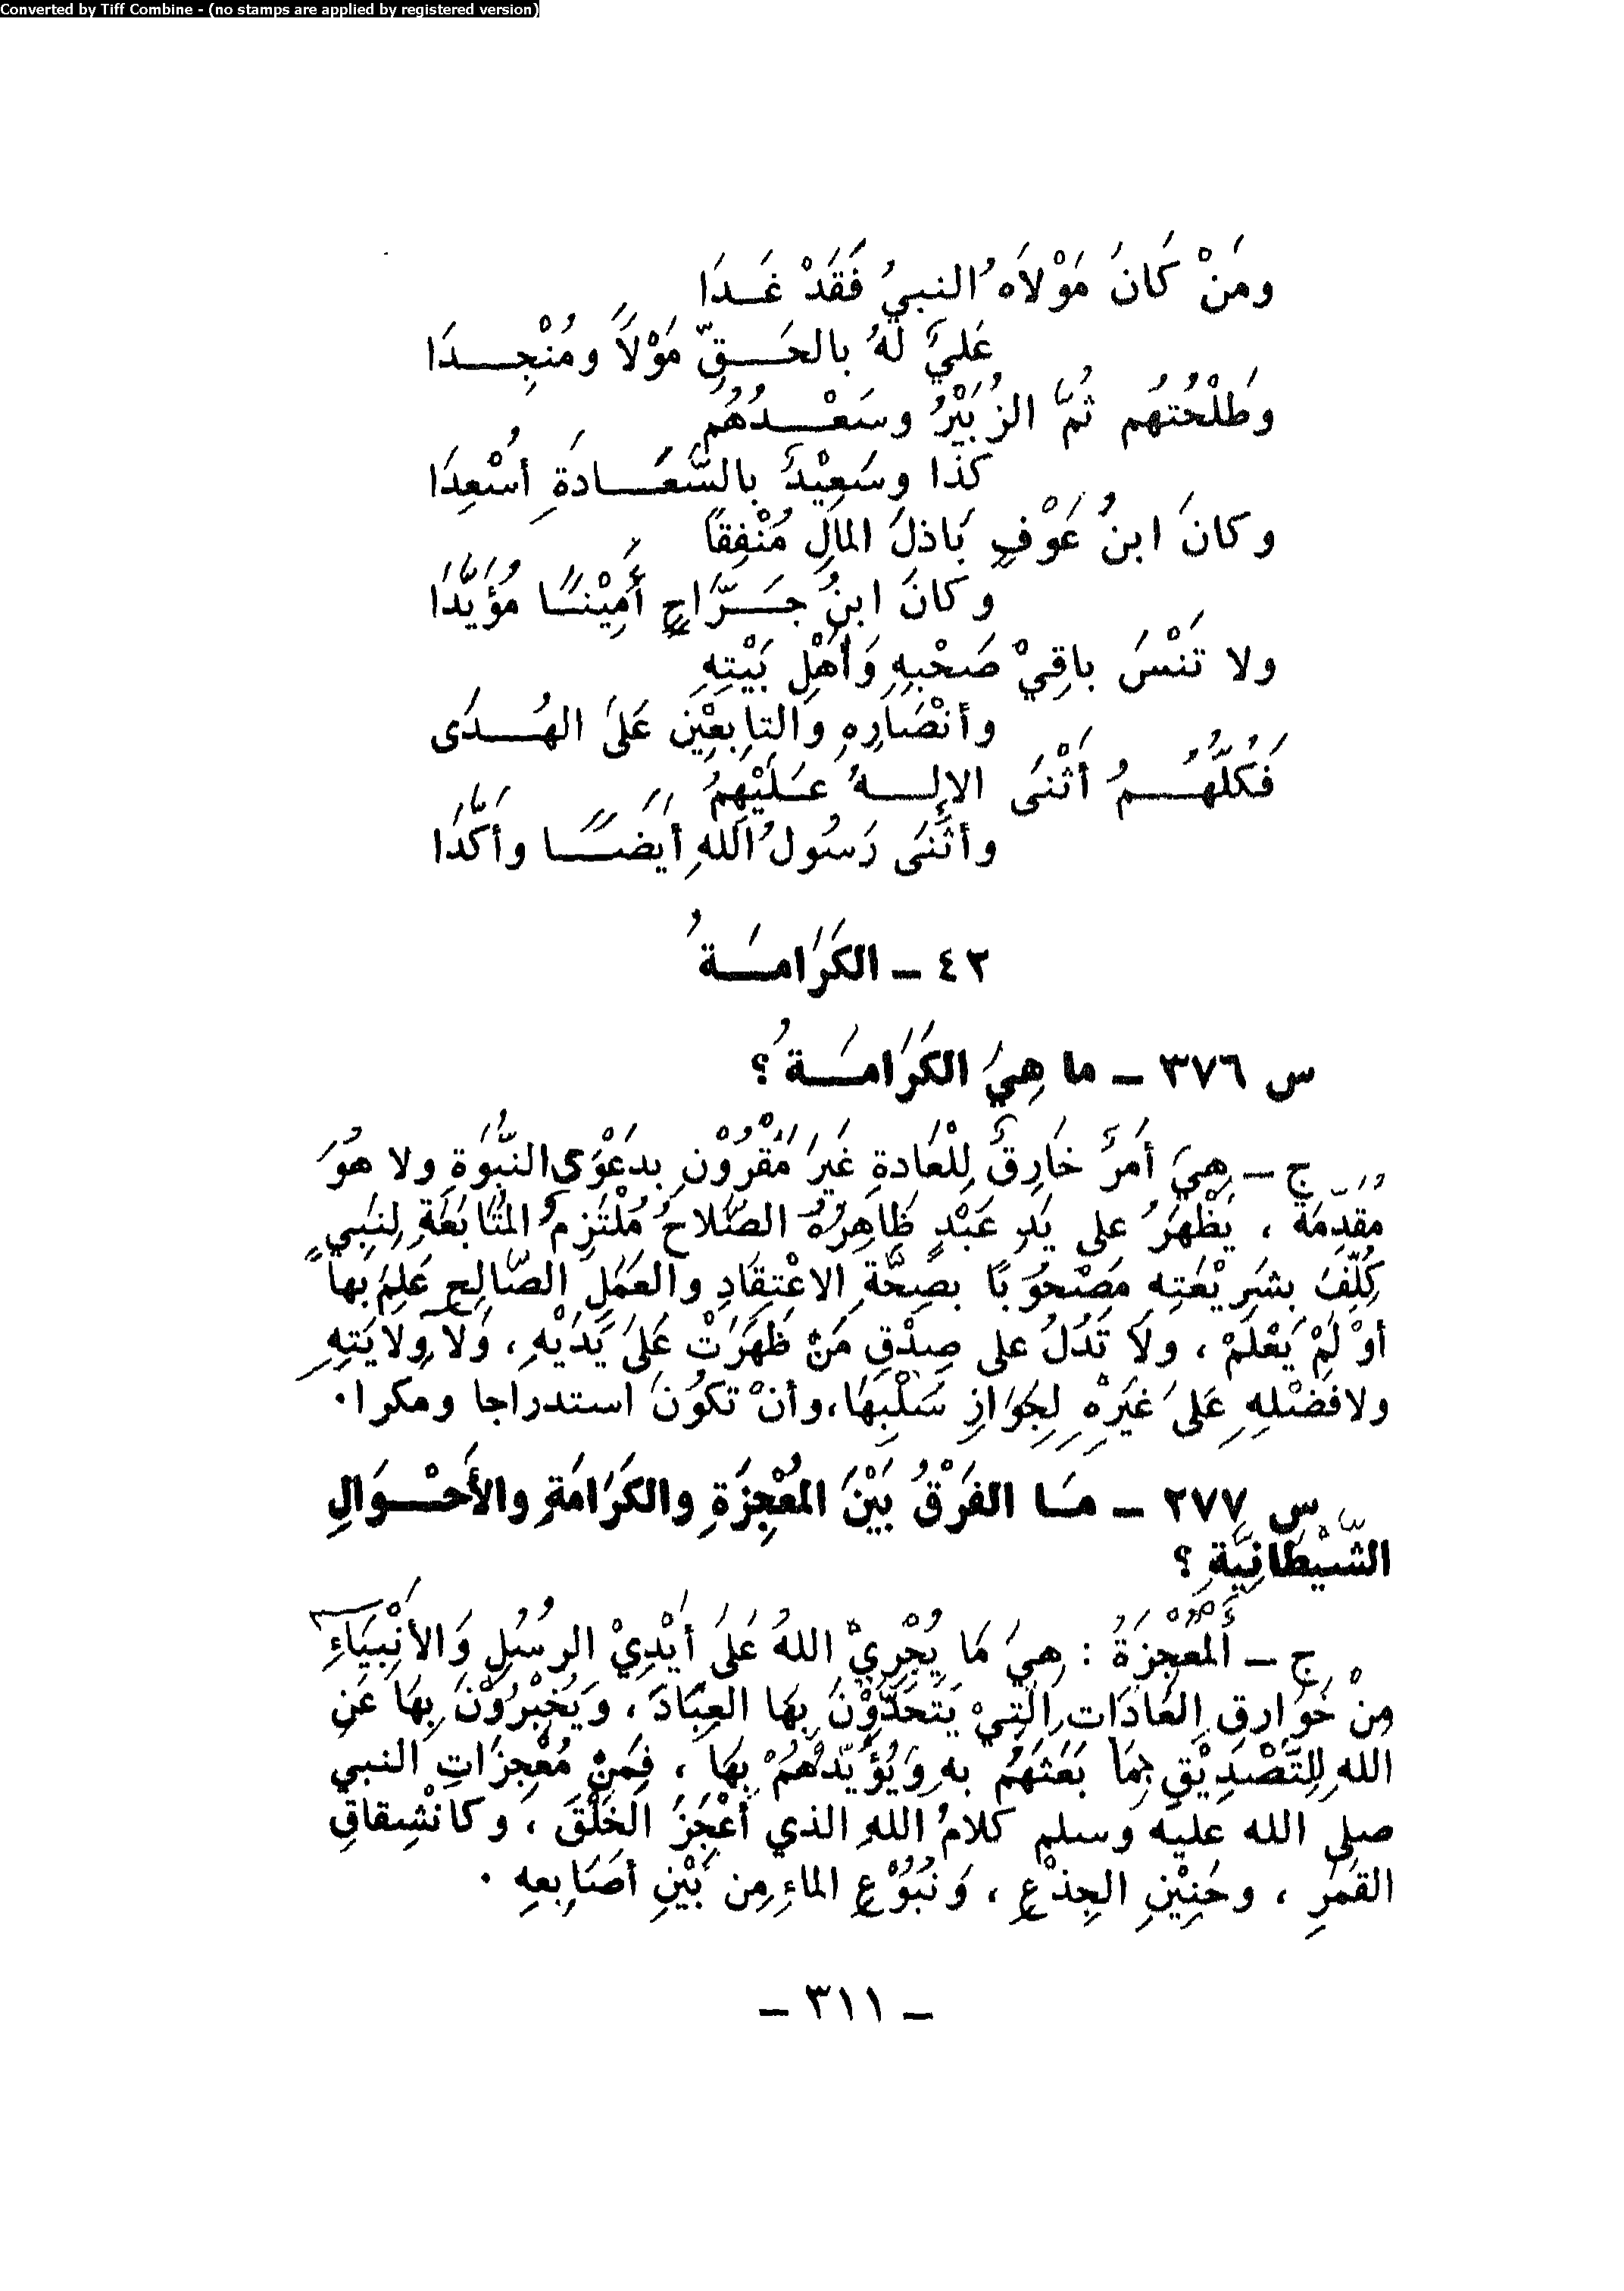 Converted by Tiff Combine - (no stamps are applied by registered version)
ومَنْ كَانَ مَوْلَاهُ النبيُ فَقَدْ غَدَا
عَليٌ لَهُ بالحَقِّ مَوْلاً ومُنْجِدَا
وطَلْحُتهُم ثُمَّ الزُبَيْرُ وسَعْدُهُمُ
كَذَا وسَعِيْدٌ بالسَّعَادَةِ أُسْعِدَا
وكانَ ابنُ عَوْفٍ بَاذلَ المَالِ مُنْفِقًا
وكانَ ابنُ جَرَّاحٍ أَمِيْنًا مُؤَيَّدَا
ولا تَنْسَ باقِيْ صَحْبِهِ وَأَهْلِ بَيْتِهِ
وأنْصَارِهِ وَالتابِعِيْنَ عَلَى الهُدَى
فَكُلُّهُمُ أثْنَى الإلهُ عَلَيْهِمُ
وأثْنَى رَسُولُ اللهِ أيضًا وأكَّدَا
٤٢ - الكَرَامَةُ
س ٣٧٦ - ما هِيَ الكَرَامَةُ؟
ج - هِيَ أَمرٌ خَارِقٌ لِلْعَادةِ غَيرَ مَقْرُوْنٍ بِدعَوْى النُّبُوةِ ولا هُوَ
مُقَدِّمَة ، يَظْهَرُ على يَدِ عَبْدٍ ظَاهِرُهُ الصَّلاحُ مُلْتَزِمُ المُتَابَعَةِ لِنَبِيٍ
كُلِّفَ بشَرِيْعَتِه مَصْحُوبًا بصِحَّةِ الاعْتِقَادِ والعَمَلِ الصَّالِحِ عَلِمَ بها
أوْ لَمْ يَعْلَمْ ، ولاَ تَدُلُ على صِدْقِ مَنْ ظَهَرَتْ عَلَى يَدَيْهِ ، وَلاَ وِلايَتِهِ
ولا فَضْلِهِ عَلَى غَيرِهِ لِجَوَازِ سَلْبِهَا، وأنْ تكُوْنَ استدراجا ومكرا .
س ٢٧٧ - مَا الفَرْقُ بَيْنَ المُعْجِزَةِ والكَرَامَةِ والأَحْوَالِ
الشَّيْطَانِيَّةِ ؟
ج - أَلْمُعْجِزَةُ : هِيَ مَا يُجْرِيْ اللهُ عَلَى أَيْدِيْ الرسُلِ وَالأنْبِيَاءِ
مِنْ خَوَارِقِ العَادَاتِ الَّتِيْ يَتَحَدَّوْنَ بِهَا العِبَادَ ، وَيُخْبِرُوْنَ بِهَا عَنِ
اللهِ لِلتَّصْدِيْقِ بِمَا بَعَثَهُمْ به وَيُؤَيِّدُهُمْ بِهَا ، فَمِنْ مُعْجِزَاتِ النبي
صلى الله عليه وسلم كلامُ اللهِ الذي أَعْجَزَ الخَلْقَ ، وكانْشِقاقِ
القَمَرِ ، وحَنِيْنِ الجِذْعِ ، وَنُبُوْعِ الماءِ مِن بَيْنِ أصَابِعِهِ .
- ٣١١ -